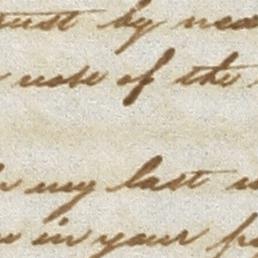 just by nea
note of the
my last
in your